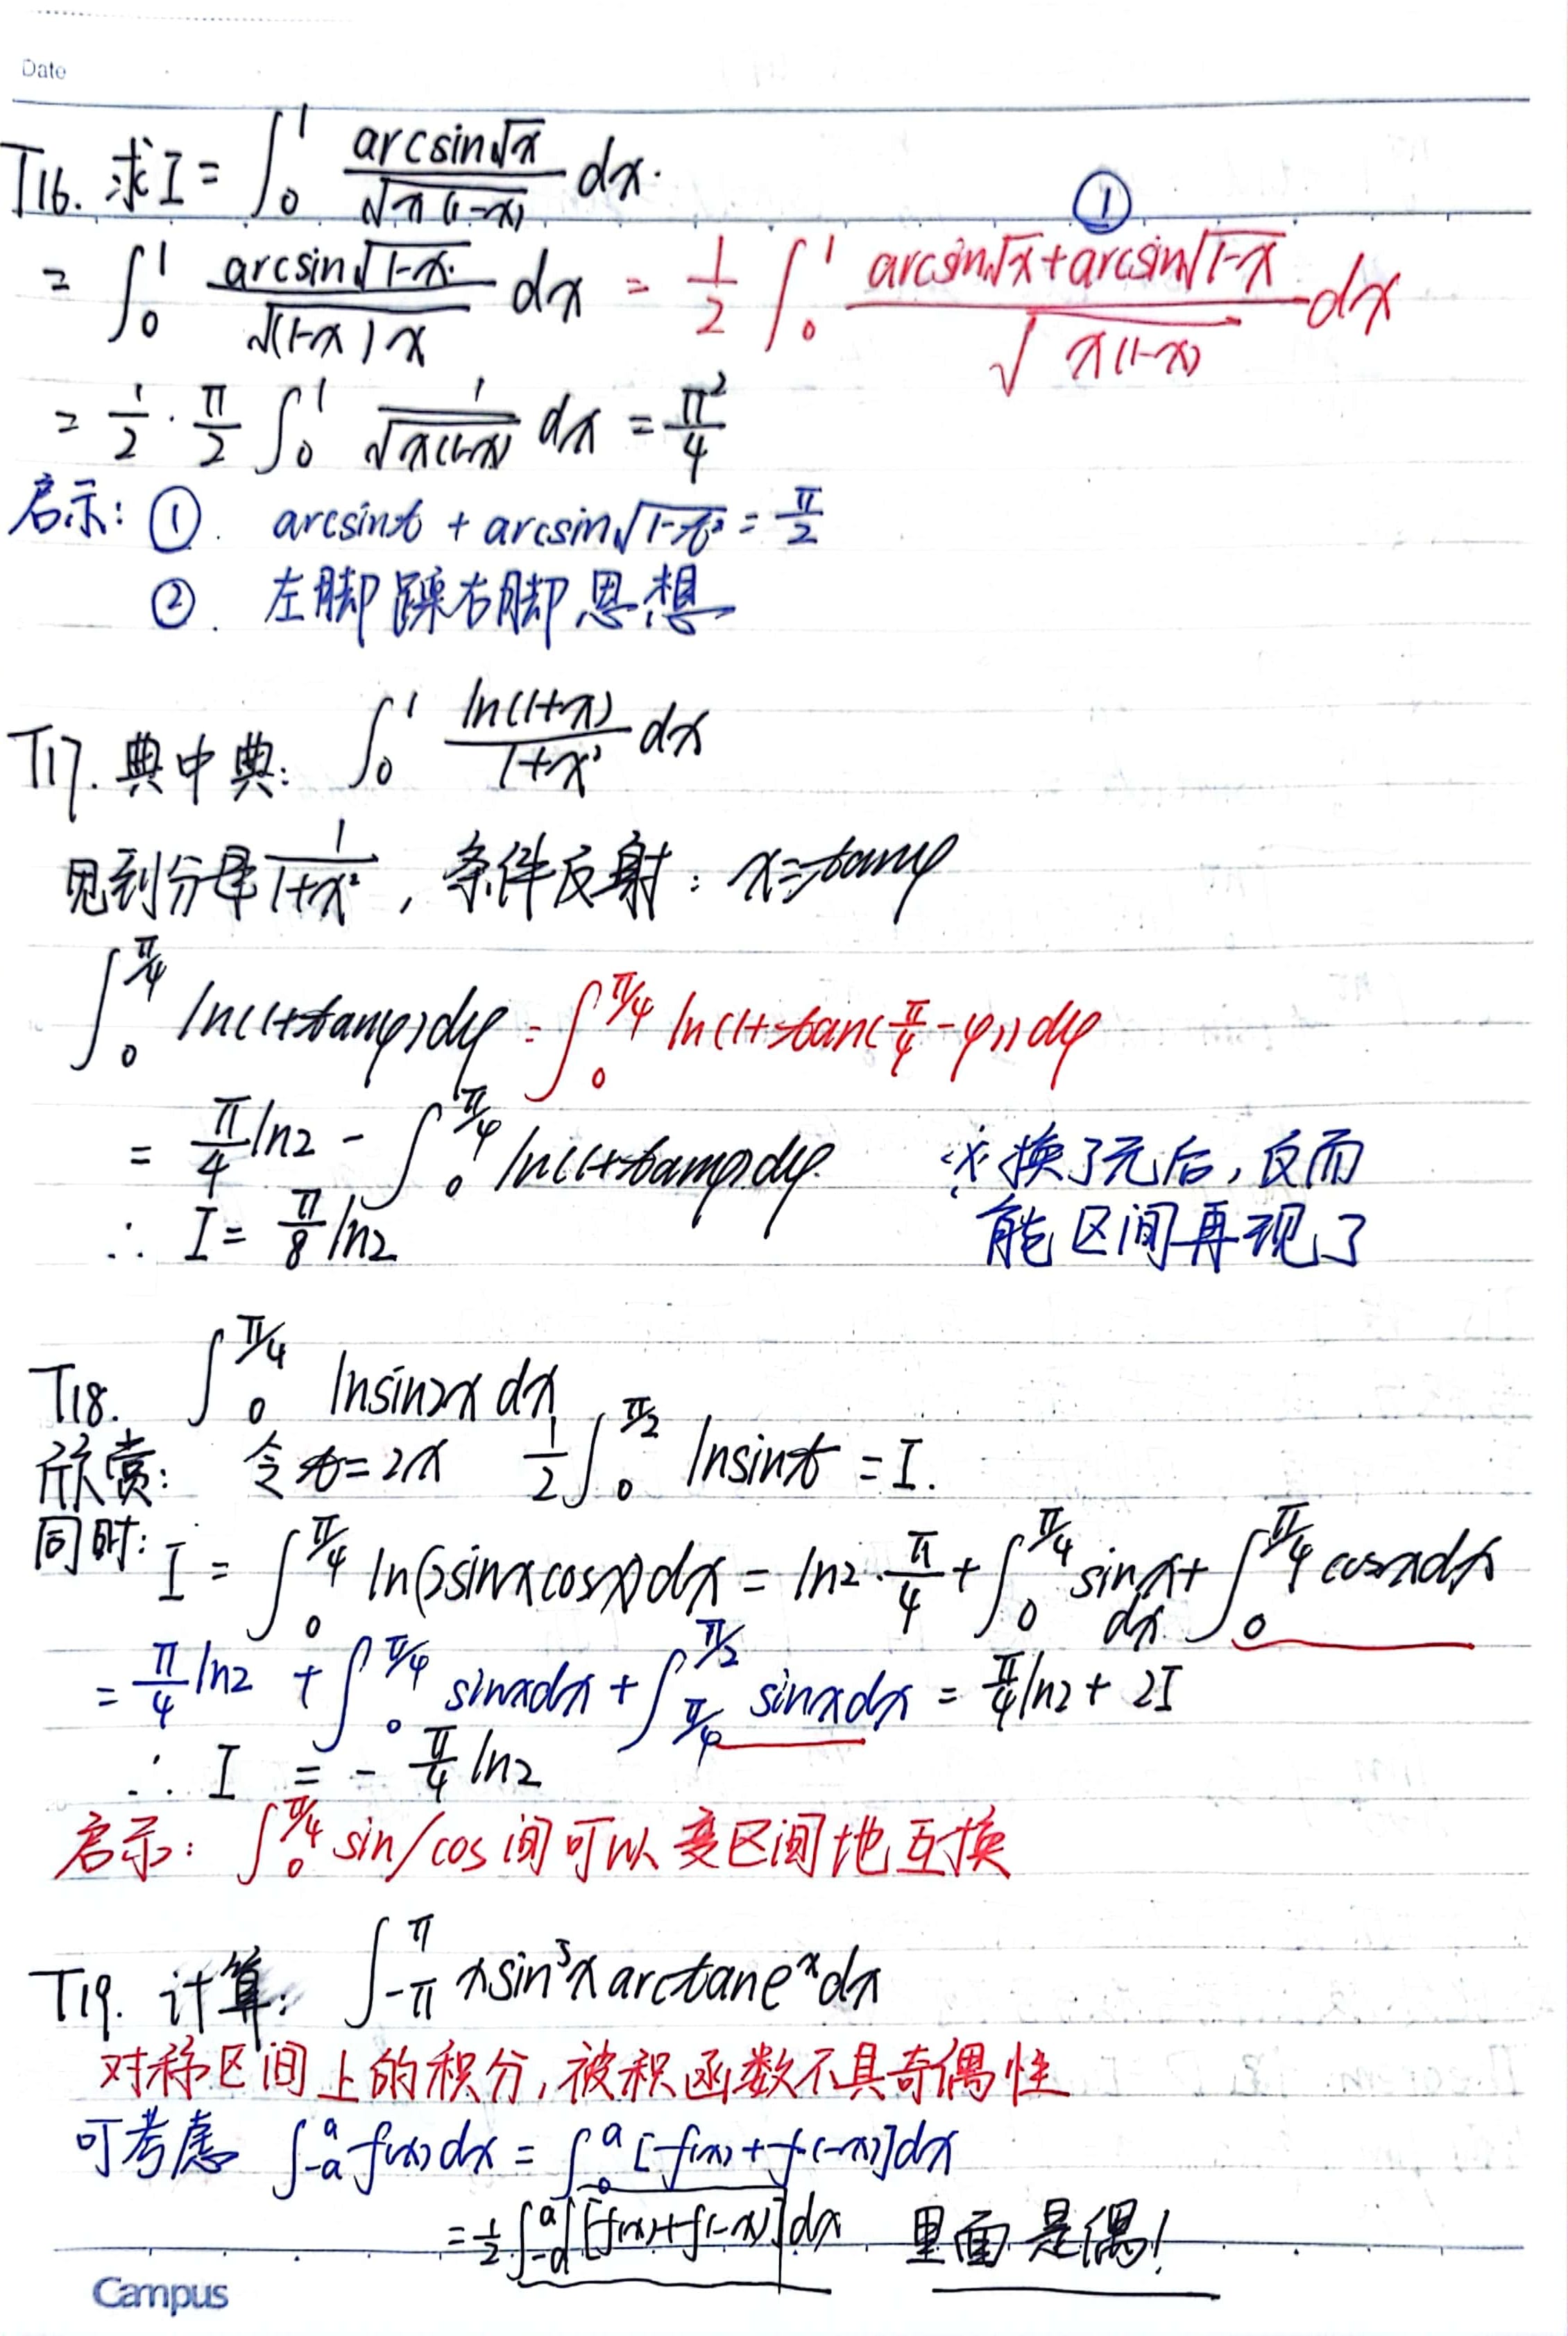 Date
T16. 求I = ∫₀¹ arcsin√x / √(x(1-x)) dx.
①
= ∫₀¹ arcsin√(1-x) / √((1-x)x) dx = 1/2 ∫₀¹ (arcsin√x + arcsin√(1-x)) / √(x(1-x)) dx
= 1/2 · π/2 ∫₀¹ 1/√(x(1-x)) dx = π²/4
启示: ①. arcsint + arcsin√(1-t²) = π/2
②. 左脚踩右脚思想
T17. 典中典: ∫₀¹ ln(1+x) / (1+x²) dx
见到分母 1/(1+x²) , 条件反射: x=tanφ
∫₀^(π/4) ln(1+tanφ)dφ = ∫₀^(π/4) ln(1+tan(π/4-φ))dφ
= π/4 ln2 - ∫₀^(π/4) ln(1+tanφ)dφ. ※换了元后,反而
∴ I = π/8 ln2 能区间再现了
T18. ∫₀^(π/4) lnsin2x dx
欣赏: 令t=2x 1/2 ∫₀^(π/2) lnsint = I.
同时: I = ∫₀^(π/4) ln(2sinxcosx)dx = ln2·π/4 + ∫₀^(π/4) sinx dx + ∫₀^(π/4) cosxdx
= π/4 ln2 + ∫₀^(π/4) sinxdx + ∫_(π/4)^(π/2) sinxdx = π/4 ln2 + 2I
∴ I = - π/4 ln2
启示: ∫₀^(π/4) sin/cos间可以变区间地互换
T19. 计算: ∫_(-π)^π xsin⁵x arctane^x dx
对称区间上的积分,被积函数不具奇偶性
可考虑 ∫_(-a)^a f(x)dx = ∫₀^a [f(x)+f(-x)]dx
= 1/2 ∫_(-a)^a [f(x)+f(-x)]dx 里面是偶!
Campus